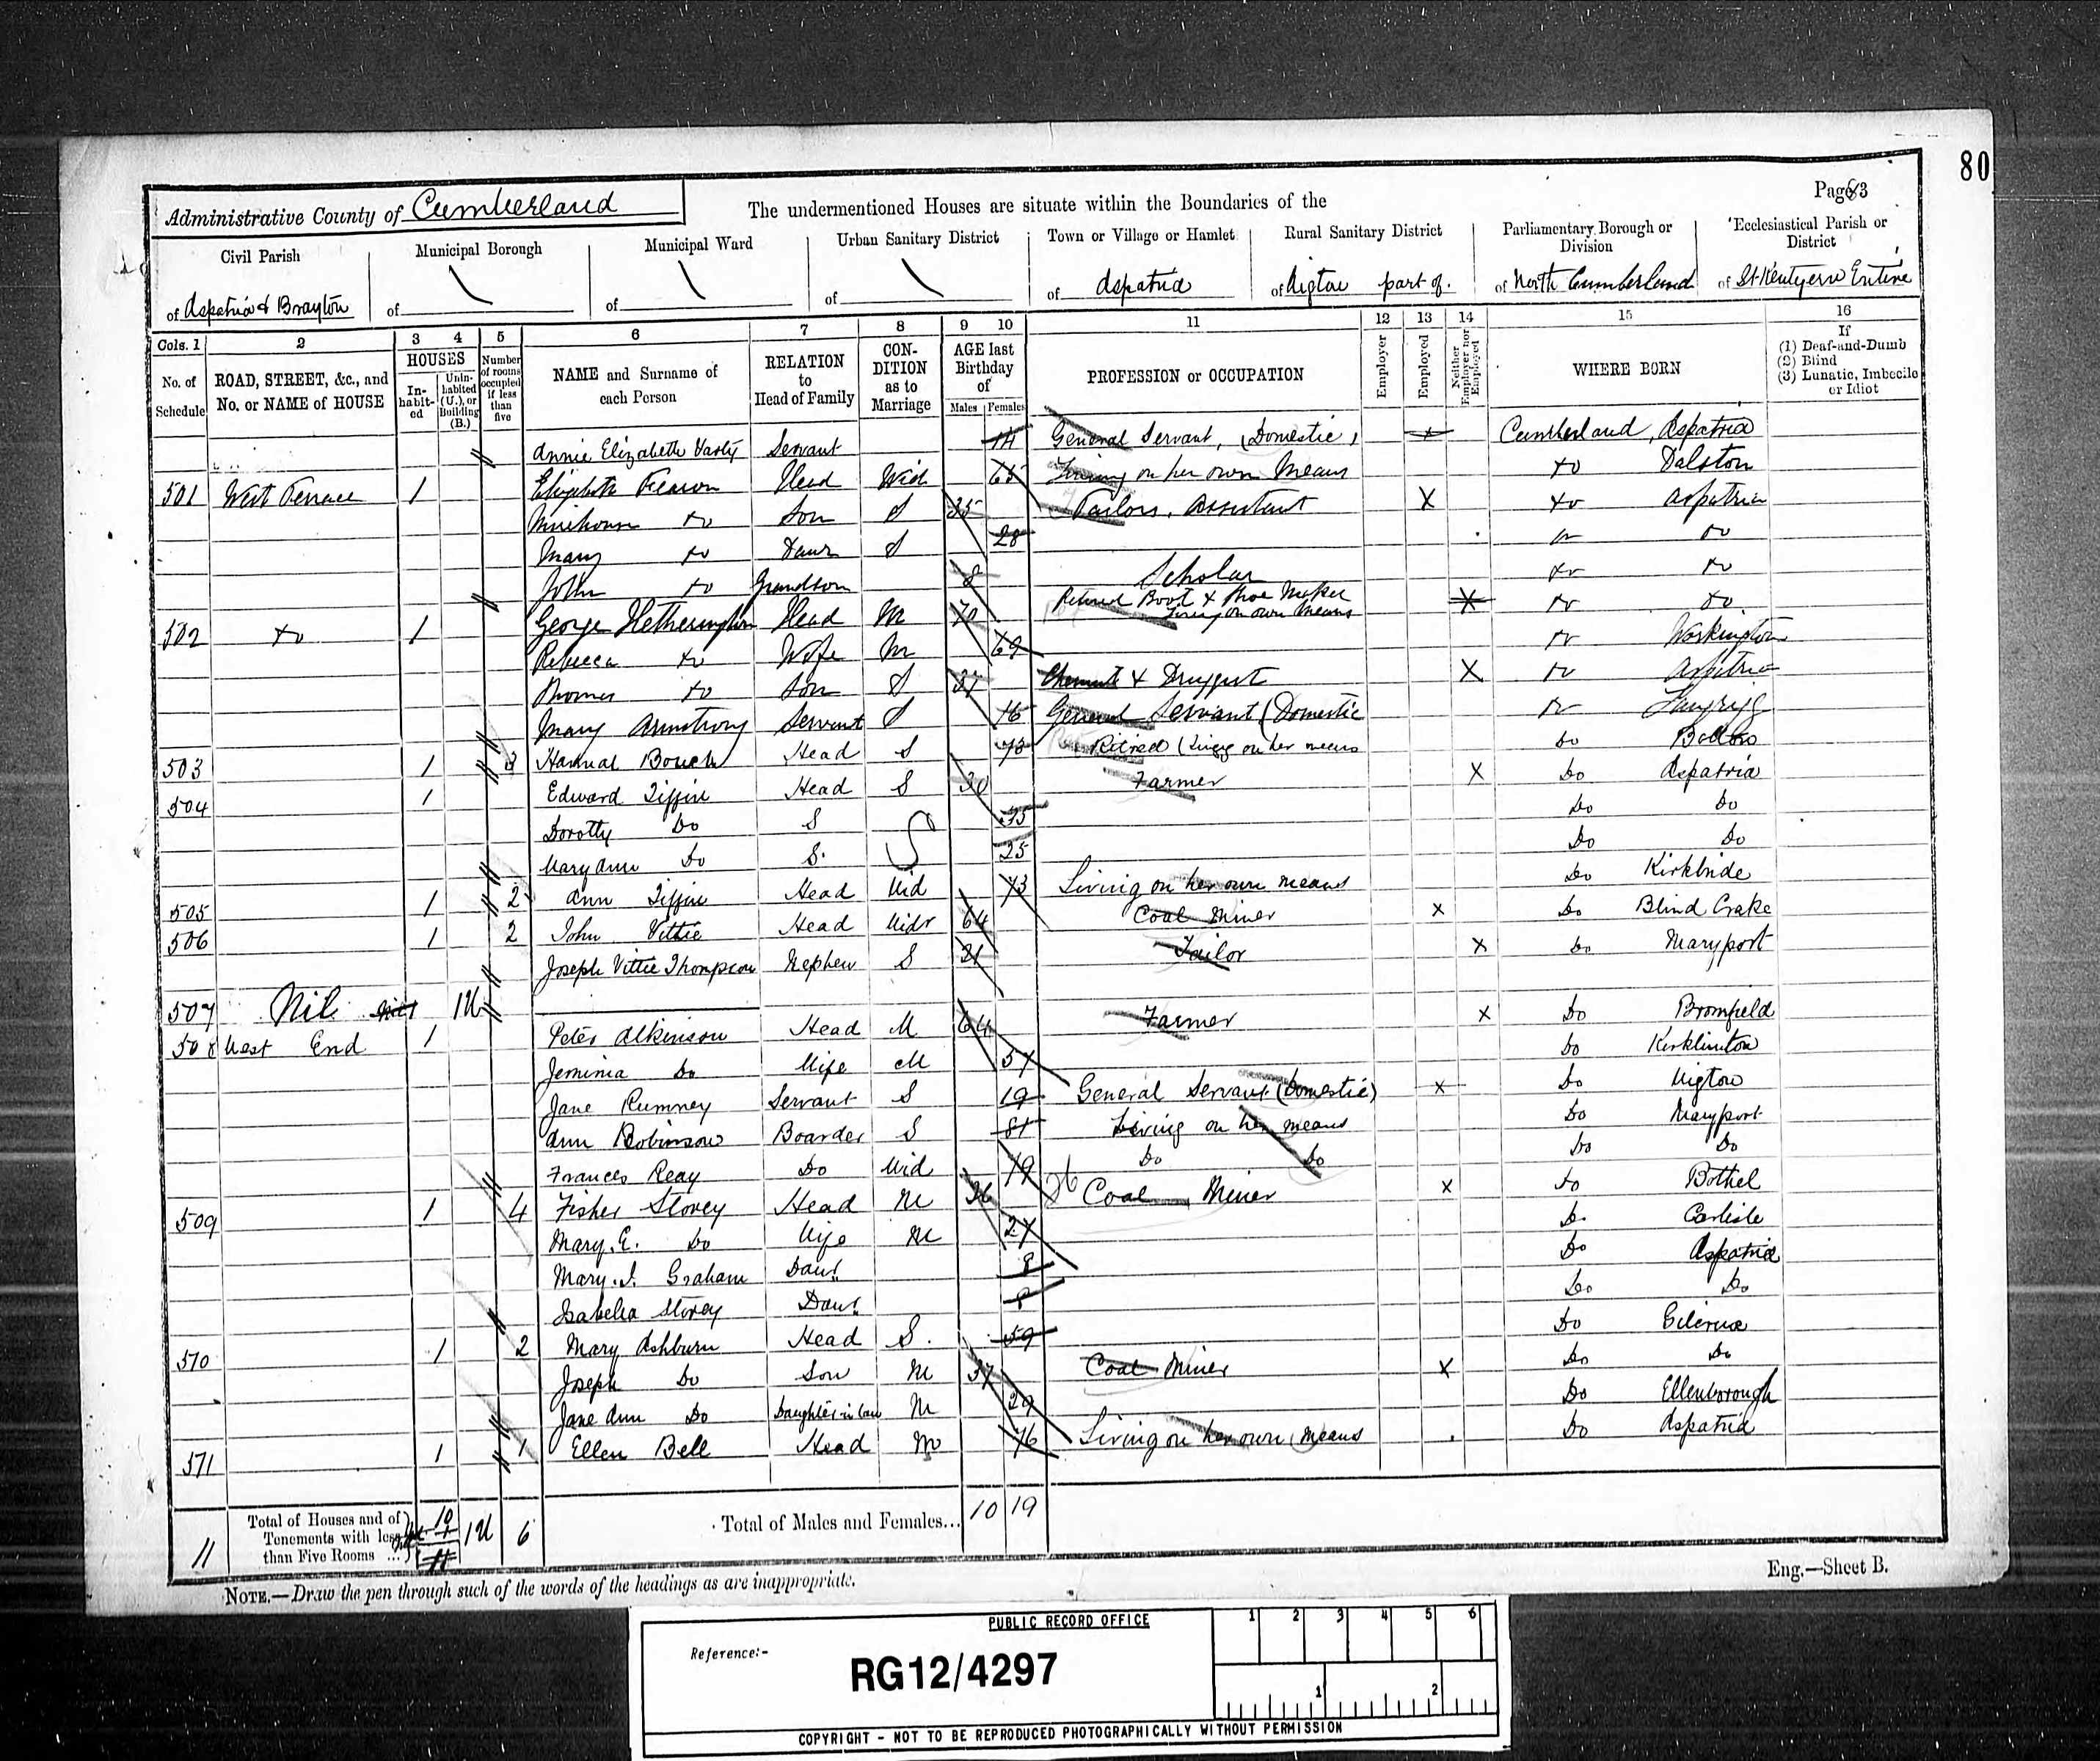 80
Page 63
Administrative County of Cumberland
The undermentioned Houses are situate within the Boundaries of the
Civil Parish
Municipal Borough
Municipal Ward
Urban Sanitary District
Town or Village or Hamlet
Rural Sanitary District
Parliamentary Borough or Division
Ecclesiastical Parish or District
of Aspatria & Brayton
of
of
of
of Aspatria
of Wigton part of.
of North Cumberland
of St Kentigern Entire
Cols. 1 2 3 4 5 6 7 8 9 10 11 12 13 14 15 16
No. of Schedule
ROAD, STREET, &c., and No. or NAME of HOUSE
HOUSES
In-habit-ed
Unin-habited (U.), or Building (B.)
Number of rooms occupied if less than five
NAME and Surname of each Person
RELATION to Head of Family
CON-DITION as to Marriage
AGE last Birthday of
Males Females
PROFESSION or OCCUPATION
Employer
Employed
Neither Employer nor Employed
WHERE BORN
If
(1) Deaf-and-Dumb
(2) Blind
(3) Lunatic, Imbecile or Idiot
Annie Elizabeth Servant 14 General Servant, (Domestic) x Cumberland, Aspatria
501 West Terrace 1 Elizabeth Fearon Head Wid 65 Living on her own Means Do Dalston
Do Son S 35 Tailors, Assistant X Do Aspatria
Mary Do Daur S 28 Do Do
John Do Grandson 8 Scholar Do Do
502 Do 1 George Hetherington Head M 70 Retired Boot & Shoe Maker Living on own Means X Do Do
Rebecca Do Wife M 69 Do Workington
Thomas Do Son S 31 Chemist & Druggist X Do Aspatria
Mary Armstrong Servant S 16 General Servant (Domestic Do Langrigg
503 1 3 Hannah Bouch Head S 73 Retired (Living on her means Do
504 1 Edward Tiffin Head S 30 Farmer X Do Aspatria
Dorothy Do S S 35 Do Do
Mary Ann Do S. 25 Do Do
505 1 2 Ann Tiffin Head Wid 73 Living on her own means Do Kirkbride
506 1 2 John Vittie Head Widr 64 Coal Miner x Do Blind Crake
Joseph Vittie Thompson Nephew S 21 Tailor x Do Maryport
507 Nil 1U
508 West End 1 Peter Atkinson Head M 64 Farmer x Do Bromfield
Jemima Do Wife M 57 Do Kirklinton
Jane Rumney Servant S 19 General Servant (Domestic) x Do Wigton
Ann Robinson Boarder S 81 Living on her means Do Maryport
Frances Reay Do Wid 79 Do Do Do Do
509 1 4 Fisher Storey Head M 36 Coal Miner x Do Bothel
Mary. E. Do Wife M 27 Do Carlisle
Mary. J. Graham Daur 8 Do Aspatria
Isabella Storey Daur Do Do
510 1 2 Mary Ashburn Head S. 59 Do Gilcrux
Joseph Do Son M 37 Coal Miner x Do Do
Jane Ann Do Daughter in law M 29 Do Ellenborough
571 1 1 Ellen Bell Head 76 Living on her own means Do Aspatria
11
Total of Houses and of Tenements with less than Five Rooms ...
10 1U 6
Total of Males and Females... 10 19
NOTE.—Draw the pen through such of the words of the headings as are inappropriate.
Eng.—Sheet B.
PUBLIC RECORD OFFICE
1 2 3 4 5 6
Reference:-
RG12/4297
1 2
COPYRIGHT - NOT TO BE REPRODUCED PHOTOGRAPHICALLY WITHOUT PERMISSION